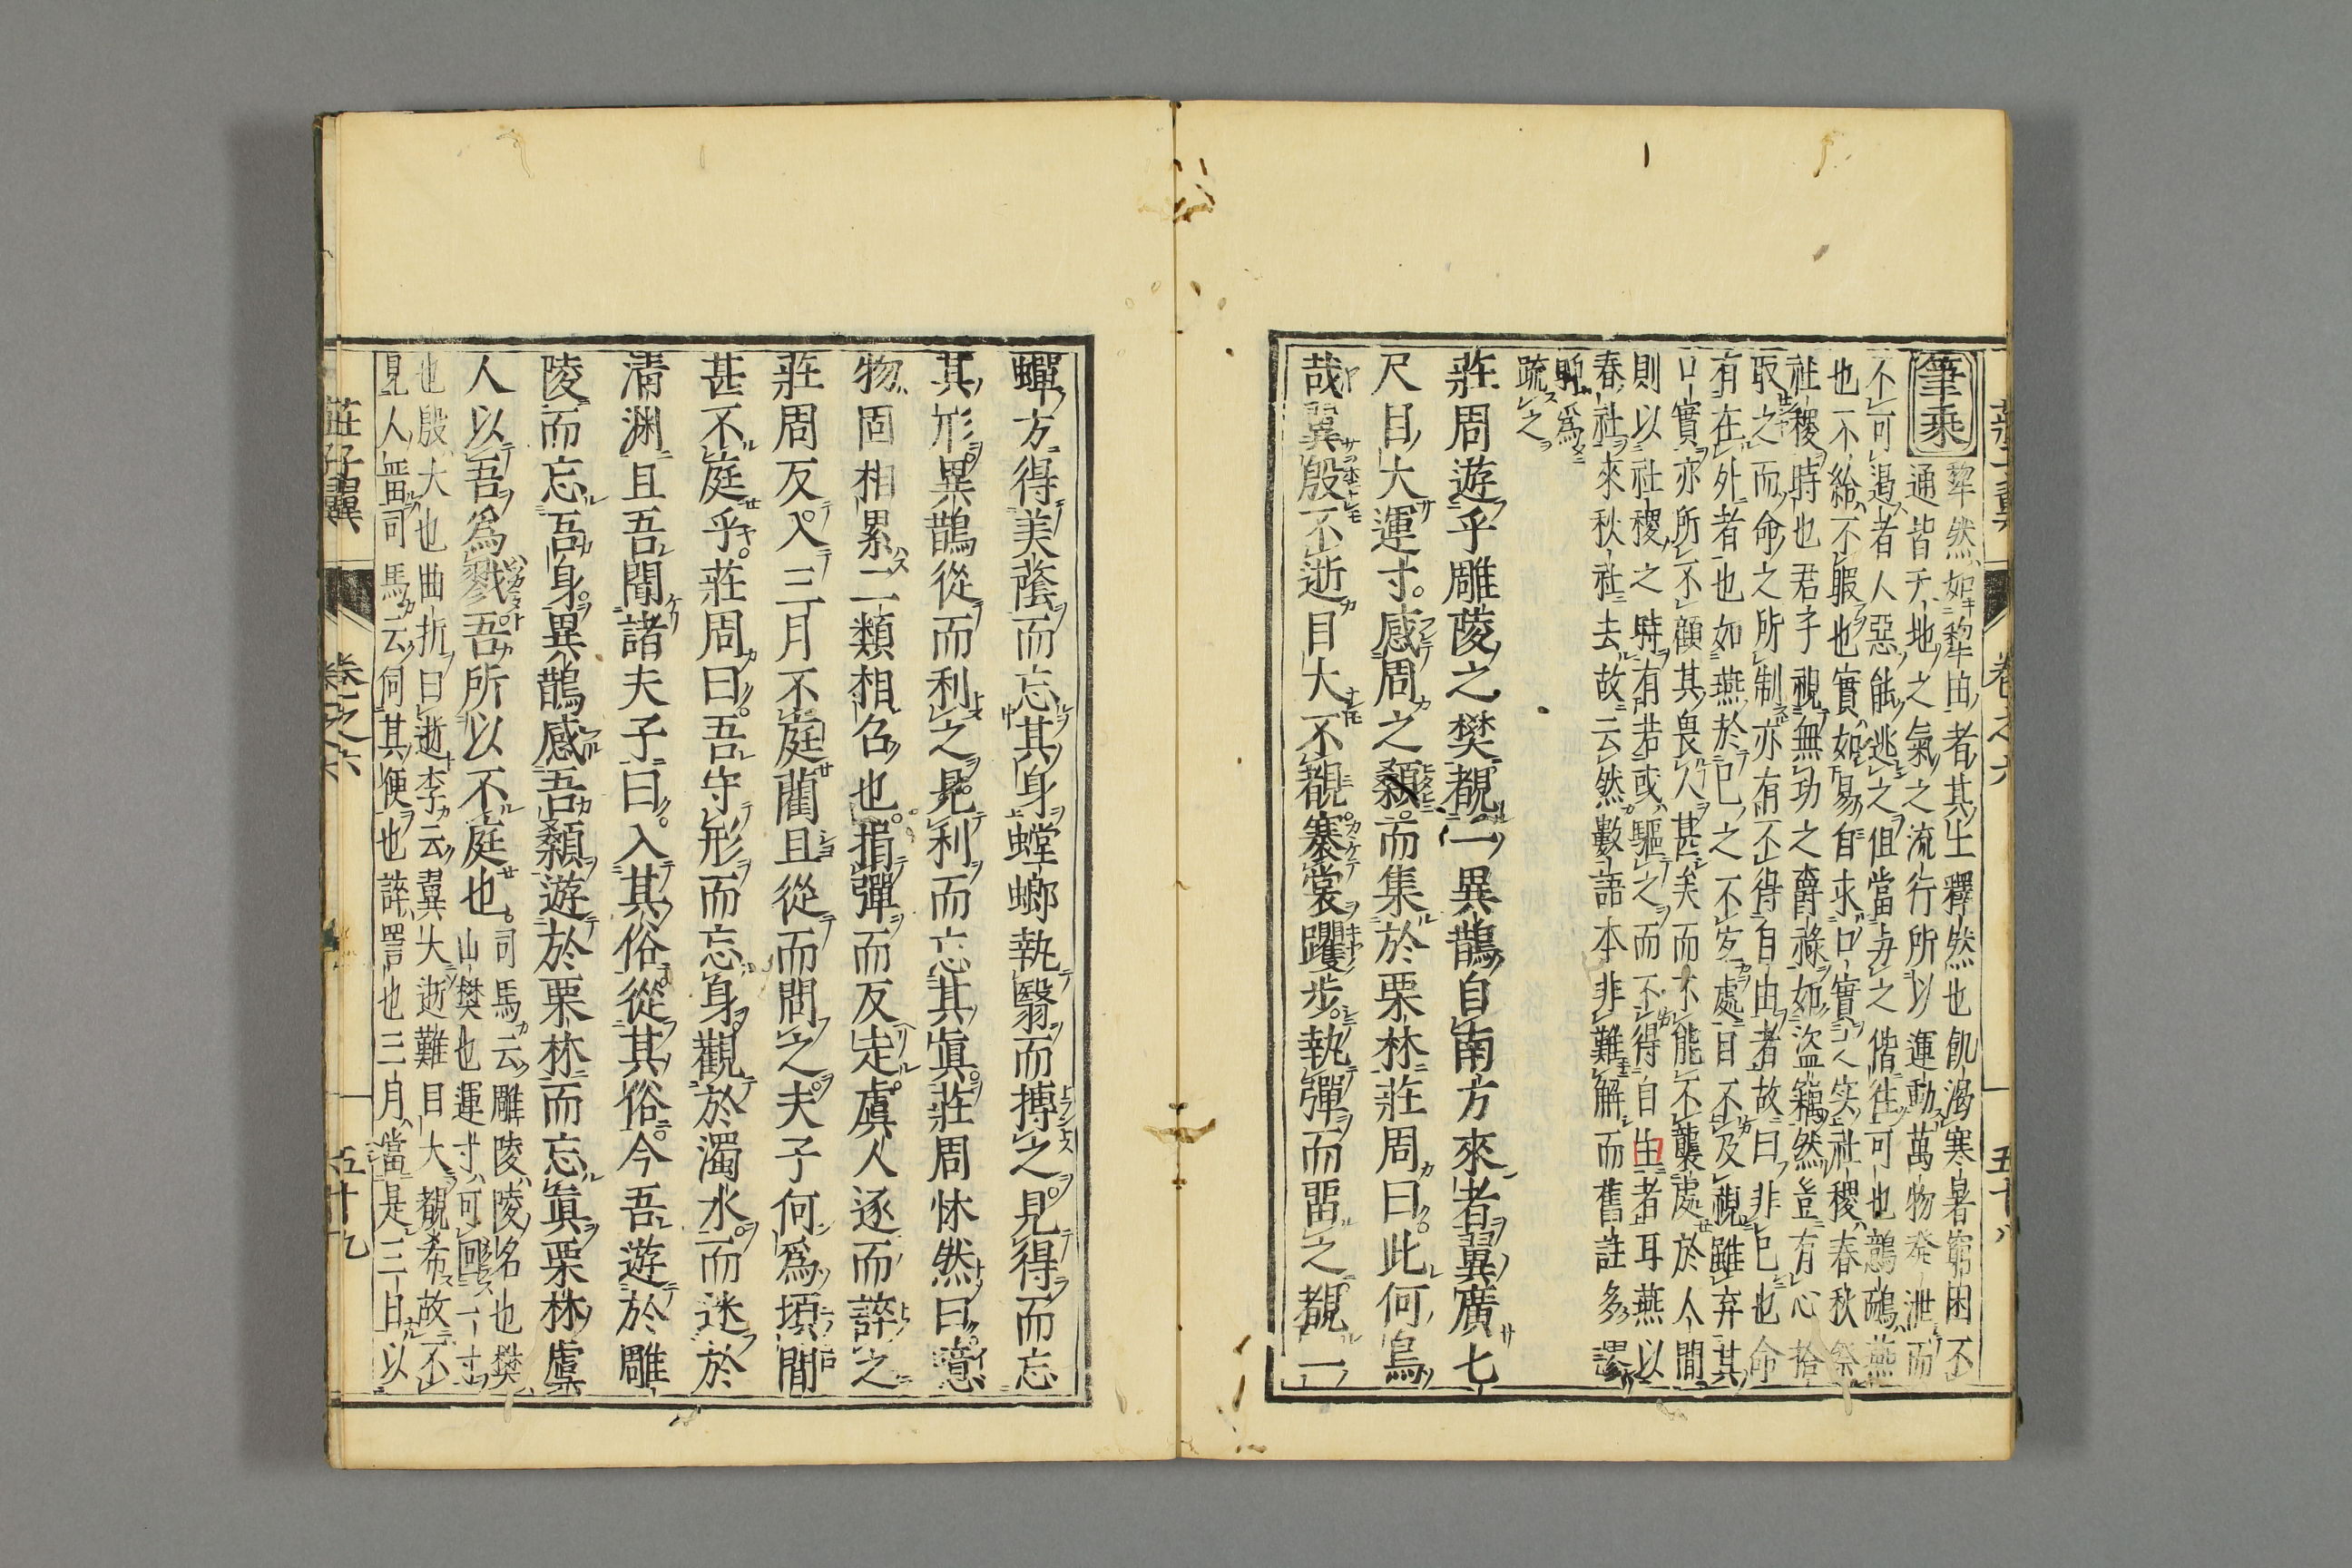 筆乘
犂然如犂由者其土釋然也飢渴寒暑窮困不
通皆天地之氣之流行所以運動萬物發泄而
不可遏者人惡能逃之但當与之偕往可也鷾鴯燕
也不給不暇也實如易自求口實人実社稷春秋祭
社稷時也君子視無功之爵祿如盗竊然豈有心拾
取之而命之所制亦有不得自由者故曰非己也命
有在外者也如燕於己之不宜處目不及視雖弃其
口實亦所不顧其畏人甚矣而不能不襲處於人間
則以社稷之時有若或驅之而不得自由者耳燕以
春社來秋社去故云然數語本非難解而舊註多
疏之
莊周遊乎雕陵之樊覩一異鵲自南方來者翼廣七
尺目大運寸感周之顙而集於栗林莊周曰此何鳥
哉翼殷不逝目大不覩蹇裳躩步執彈而畱之覩一
蟬方得美蔭而忘其身螳螂執翳而搏之見得而忘
其形異鵲從而利之見利而忘其眞莊周怵然曰噫
物固相累二類相召也捐彈而反走虞人逐而誶之
莊周反入三月不庭藺且從而問之夫子何爲頃間
甚不庭乎莊周曰吾守形而忘身觀於濁水而迷於
清渊且吾聞諸夫子曰入其俗從其俗今吾遊於雕
陵而忘吾身異鵲感吾顙遊於栗林而忘眞栗林虞
人以吾爲戮吾所以不庭也司馬云雕陵陵名也樊
山樊也運寸可回一寸
也殷大也曲折曰逝李云翼大逝難目大覩希故不
見人畱司馬云伺其便也誶罵也三月當是三日以
莊子翼
卷之六
五十八
莊子翼
卷之六
五十九